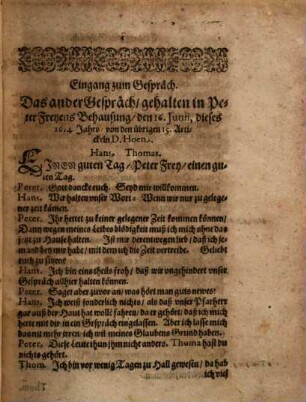 Eingang zum Gespräch.
Das ander Gespräch/ gehalten in Pe-
ter Freyens Behausung/ den 16. Junij, dieses
1614 Jahrs/ von den übrigen 15. Arti-
ckeln D. Hoens.
Hans. Thomas.
EINEN guten Tag/ Peter Frey/ einen gu-
ten Tag.
Peter. Gott dancke euch. Seyd mir willkommen.
Hans. Wir halten unser Wort. Wenn wir nur zu gelege-
ner zeit kämen.
Peter. Ihr hettet zu keiner gelegener Zeit kommen können/
Dann wegen meines Leibes blödigkeit muß ich mich ohne das
jetzt zu Hause halten. Ist mir derentwegen lieb/ daß ich je-
mand bey mir habe/ mit dem ich die Zeit vertreibe. Geliebt
euch zu sitzen
Hans. Ich bin eins theils froh/ daß wir ungehindert unser
Gespräch allhier halten können.
Peter. Saget aber zuvor an/ was hört man guts newes?
Hans. Ich weiß sonderlich nichts/ als daß unser Pfarherr
gar auß der Haut hat woll fahren/ da er gehört/ daß ich mich
hette mit dir in ein Gespräch eingelassen. Aber ich lasse mich
das nit mehr irren: ich wil meines Glaubens Grund haben.
Peter. Diese Leute thun jhm nicht anders. Thoma hast du
nichts gehört.
Thom. Ich bin vor wenig Tagen zu Hall gewesen/ da hab
ich